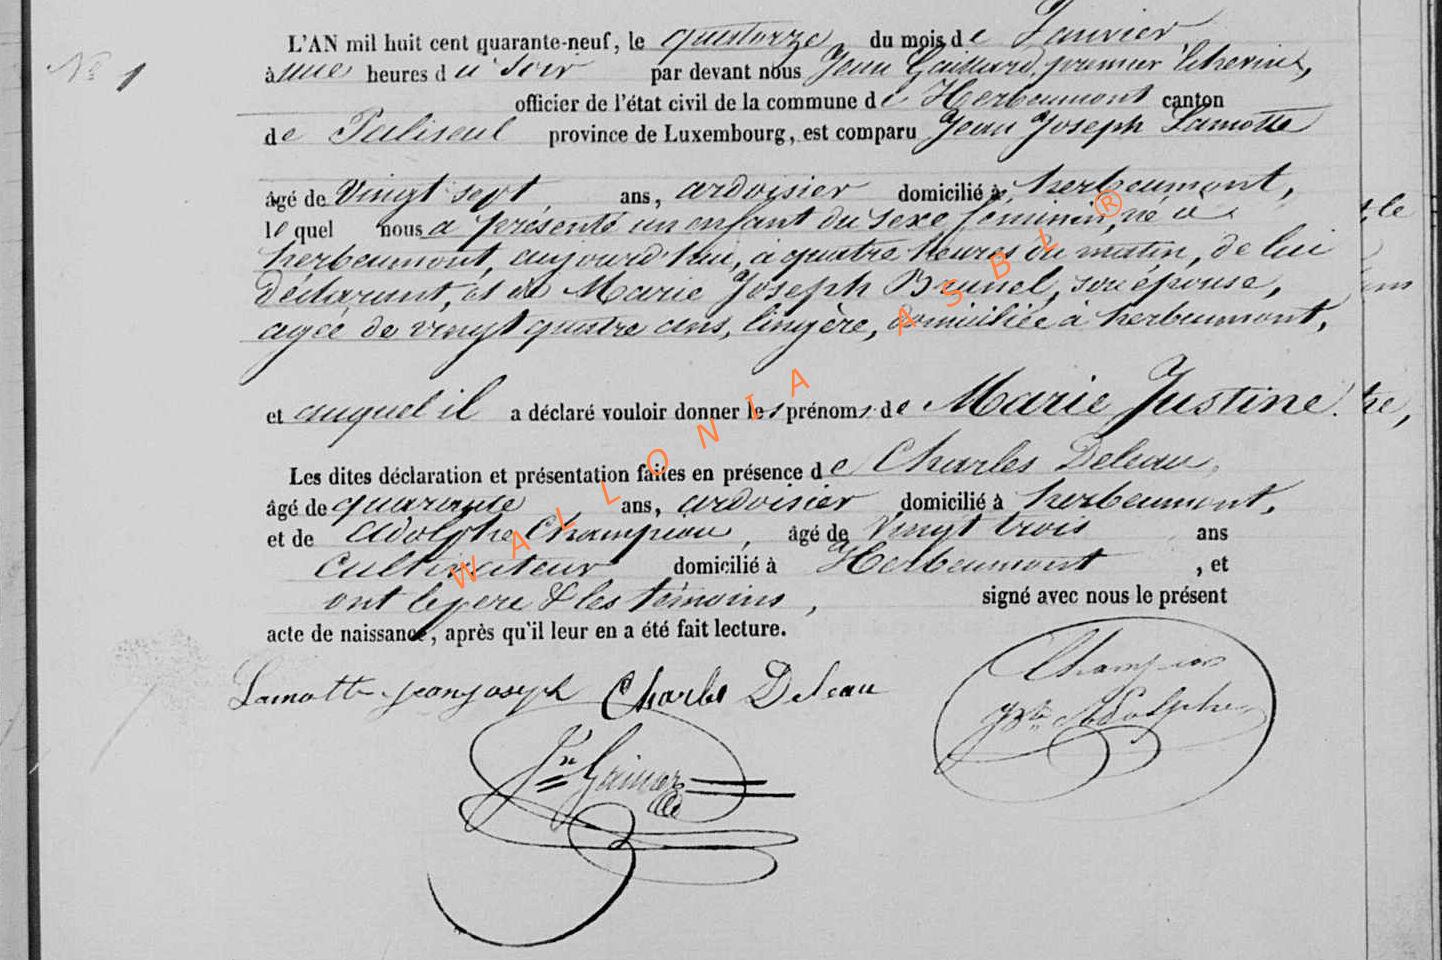 N° 1
L'AN mil huit cent quarante-neuf, le quatorze du mois de Janvier
à une heures du soir par devant nous Jean premier Echevin,
officier de l'état civil de la commune de Herbeumont canton
de Paliseul province de Luxembourg, est comparu Jean Joseph Lamotte
âgé de Vingt sept ans, ardoisier domicilié à herbeumont,
le quel nous a présenté un enfant du sexe féminin, né à
herbeumont, aujourd'hui, à quatre heures du matin, de lui
déclarant, et de Marie Joseph Brunel, son épouse,
agée de vingt quatre ans, lingère, domiciliée à herbeumont,
et auquel il a déclaré vouloir donner les prénoms de Marie Justine.
Les dites déclaration et présentation faites en présence de Charles Deleau,
âgé de quarante ans, ardoisier domicilié à herbeumont,
et de Adolphe Champion, âgé de Vingt trois ans
Cultivateur domicilié à Herbeumont, et
ont le pere & les témoins, signé avec nous le présent
acte de naissance, après qu'il leur en a été fait lecture.
Lamotte jean joseph Charles Deleau
Champion
Adolphe
WALLONIA ASBL ®